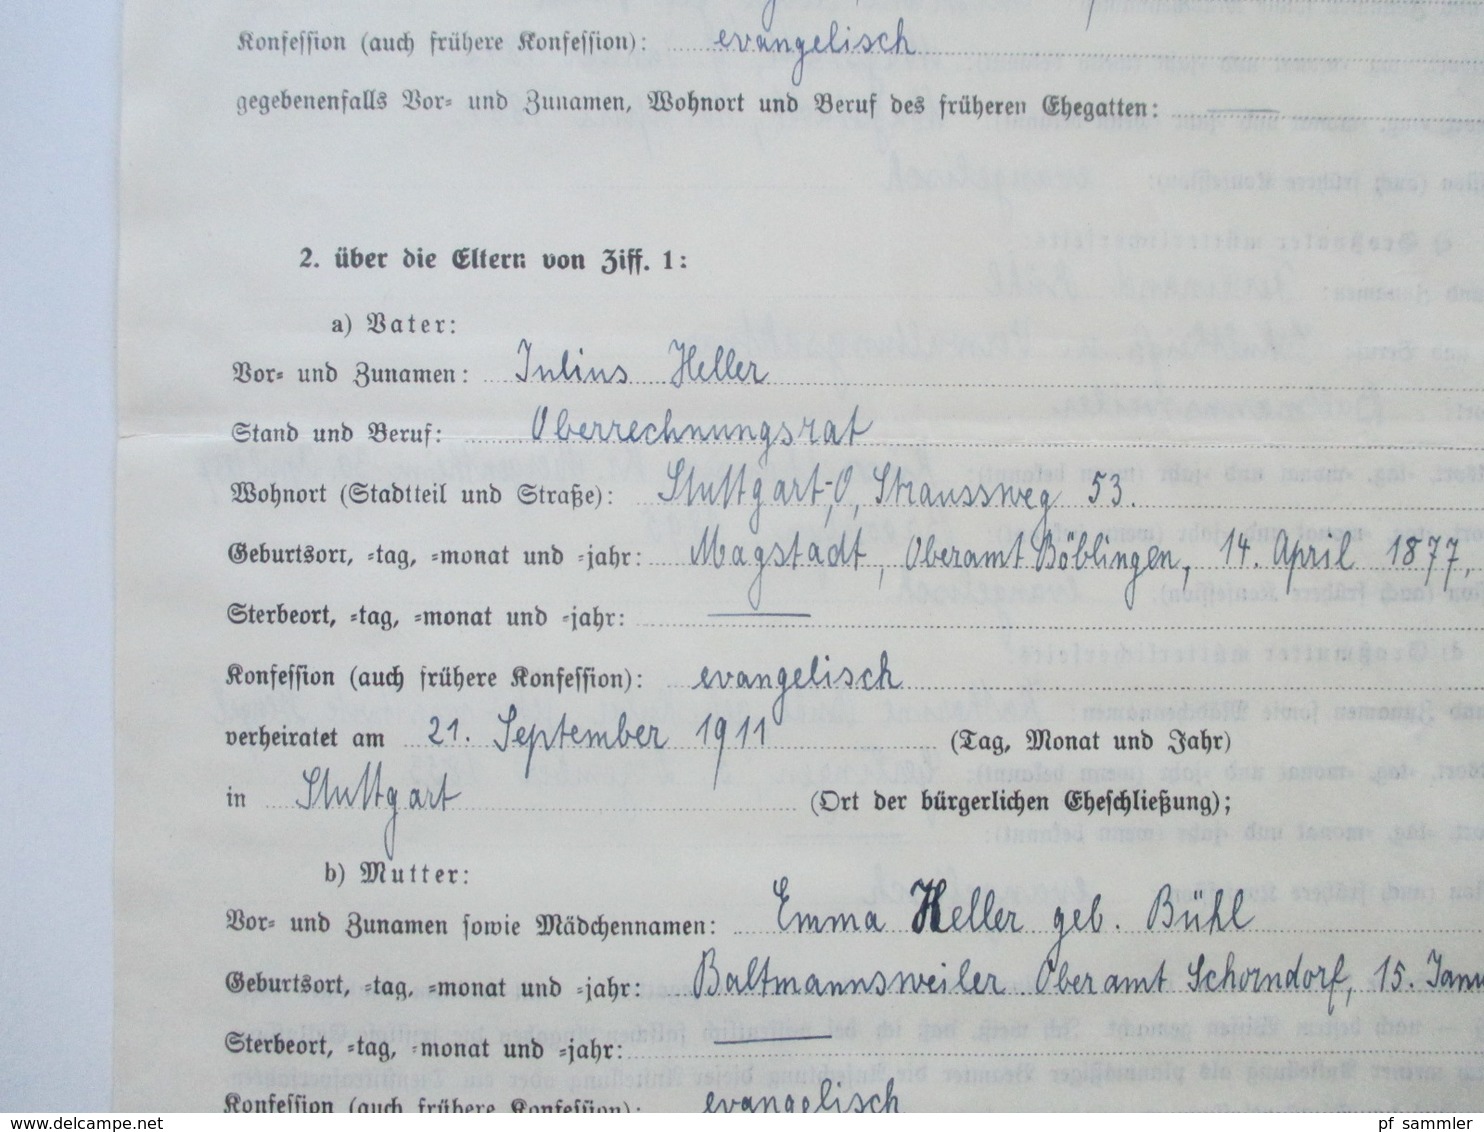 Konfession (auch frühere Konfession): evangelisch
gegebenenfalls Vor- und Zunamen, Wohnort und Beruf des früheren Ehegatten: —
2. über die Eltern von Ziff. 1:
a) Vater:
Vor- und Zunamen: Julius Heller
Stand und Beruf: Oberrechnungsrat
Wohnort (Stadtteil und Straße): Stuttgart-O, Straussweg 53.
Geburtsort, -tag, -monat und -jahr: Magstadt, Oberamt Böblingen, 14. April 1877,
Sterbeort, -tag, -monat und -jahr: —
Konfession (auch frühere Konfession): evangelisch
verheiratet am 21. September 1911 (Tag, Monat und Jahr)
in Stuttgart (Ort der bürgerlichen Eheschließung);
b) Mutter:
Vor- und Zunamen sowie Mädchennamen: Emma Heller geb. Bühl
Geburtsort, -tag, -monat und -jahr: Baltmannsweiler Oberamt Schorndorf, 15. Janu
Sterbeort, -tag, -monat und -jahr: —
Konfession (auch frühere Konfession): evangelisch
www.delcampe.net pf_sammler